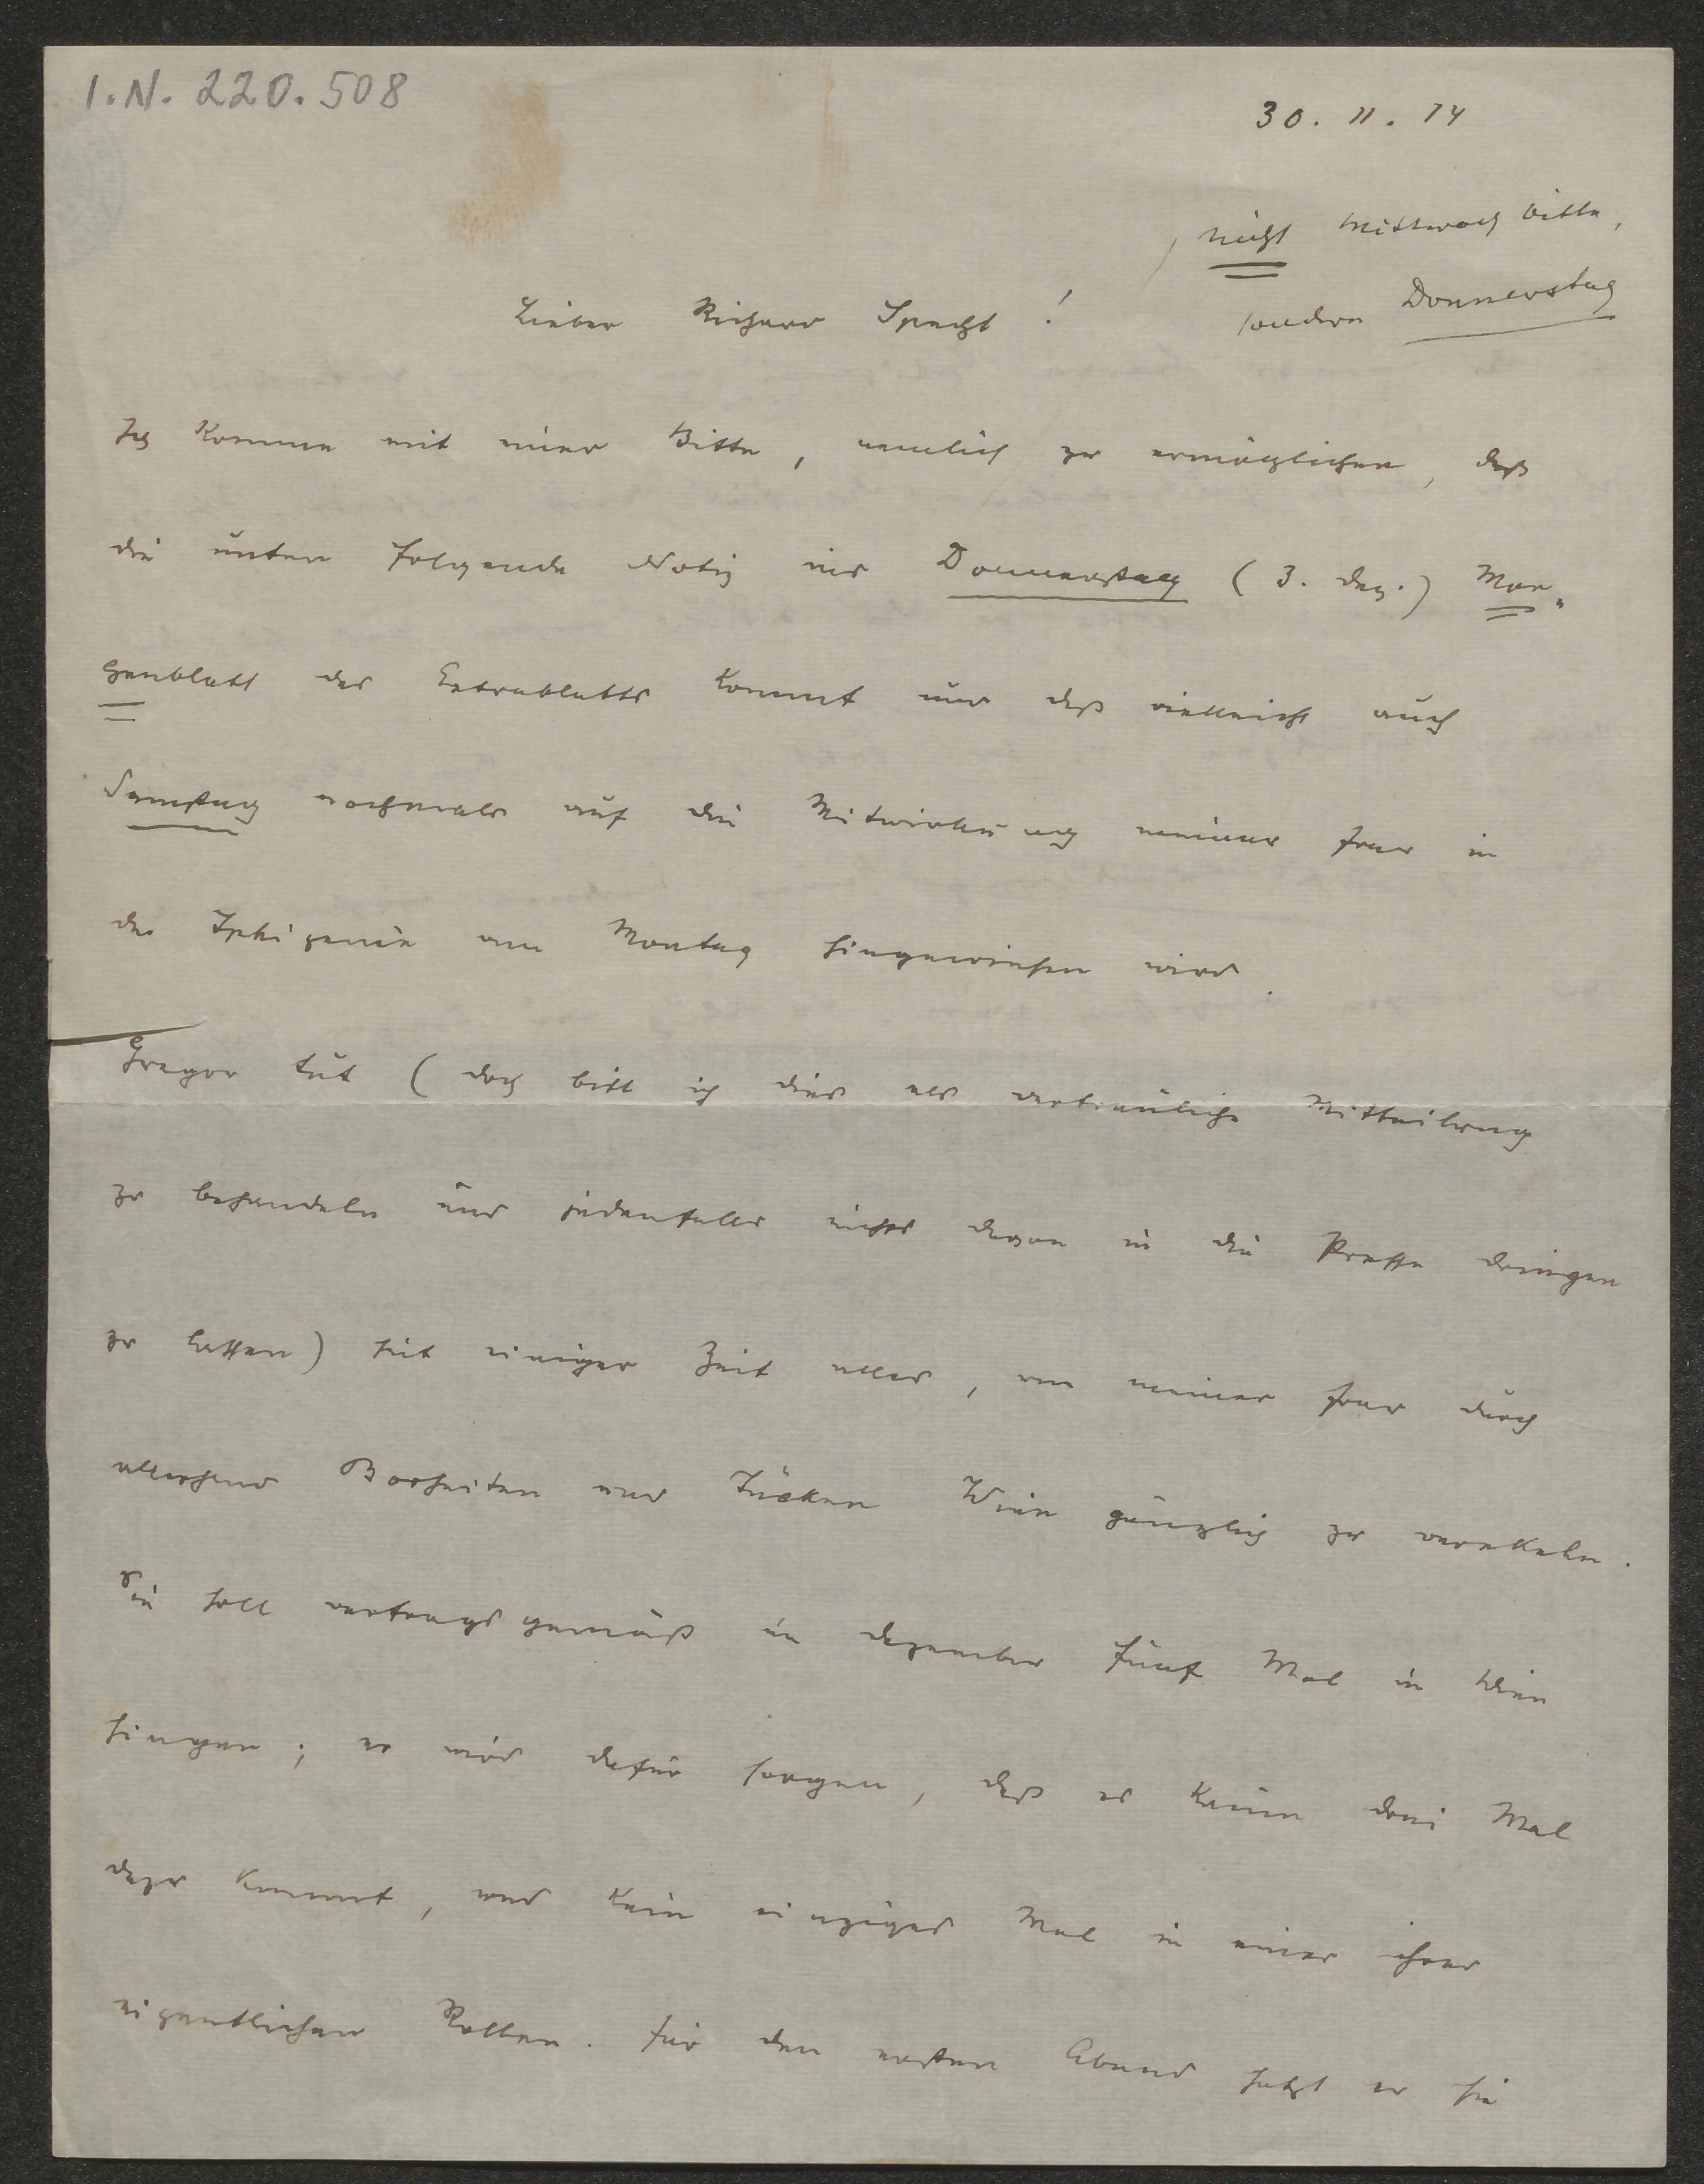 I.N. 220.508
30. 11. 14
nicht Mittwoch bitte,
sondern Donnerstag
Lieber Richard Specht!
Ich komme mit einer Bitte, nemlich zu ermöglichen, daß
die unten folgende Notiz ins Donnerstag (3. Dez.) Mor-
genblatt des Extrablatts kommt und daß vielleicht auch
Samstag nochmals auf die Mitwirkung meiner Frau in
der Iphigenie am Montag hingewiesen wird.
Gregor tut (doch bitt ich dies als vertrauliche Mitteilung
zu behandeln und jedenfalls nichts davon in die Presse dringen
zu lassen) seit einiger Zeit alles, um meiner Frau durch
allerhand Bosheiten und Tücken Wien gänzlich zu verekeln.
Sie soll vertragsgemäß im Dezember fünf Mal in Wien
singen; er wird dafür sorgen, daß es kaum drei Mal
dazu kommt, und kein einziges Mal in einer ihrer
eigentlichen Rollen. Für den ersten Abend setzt er sie